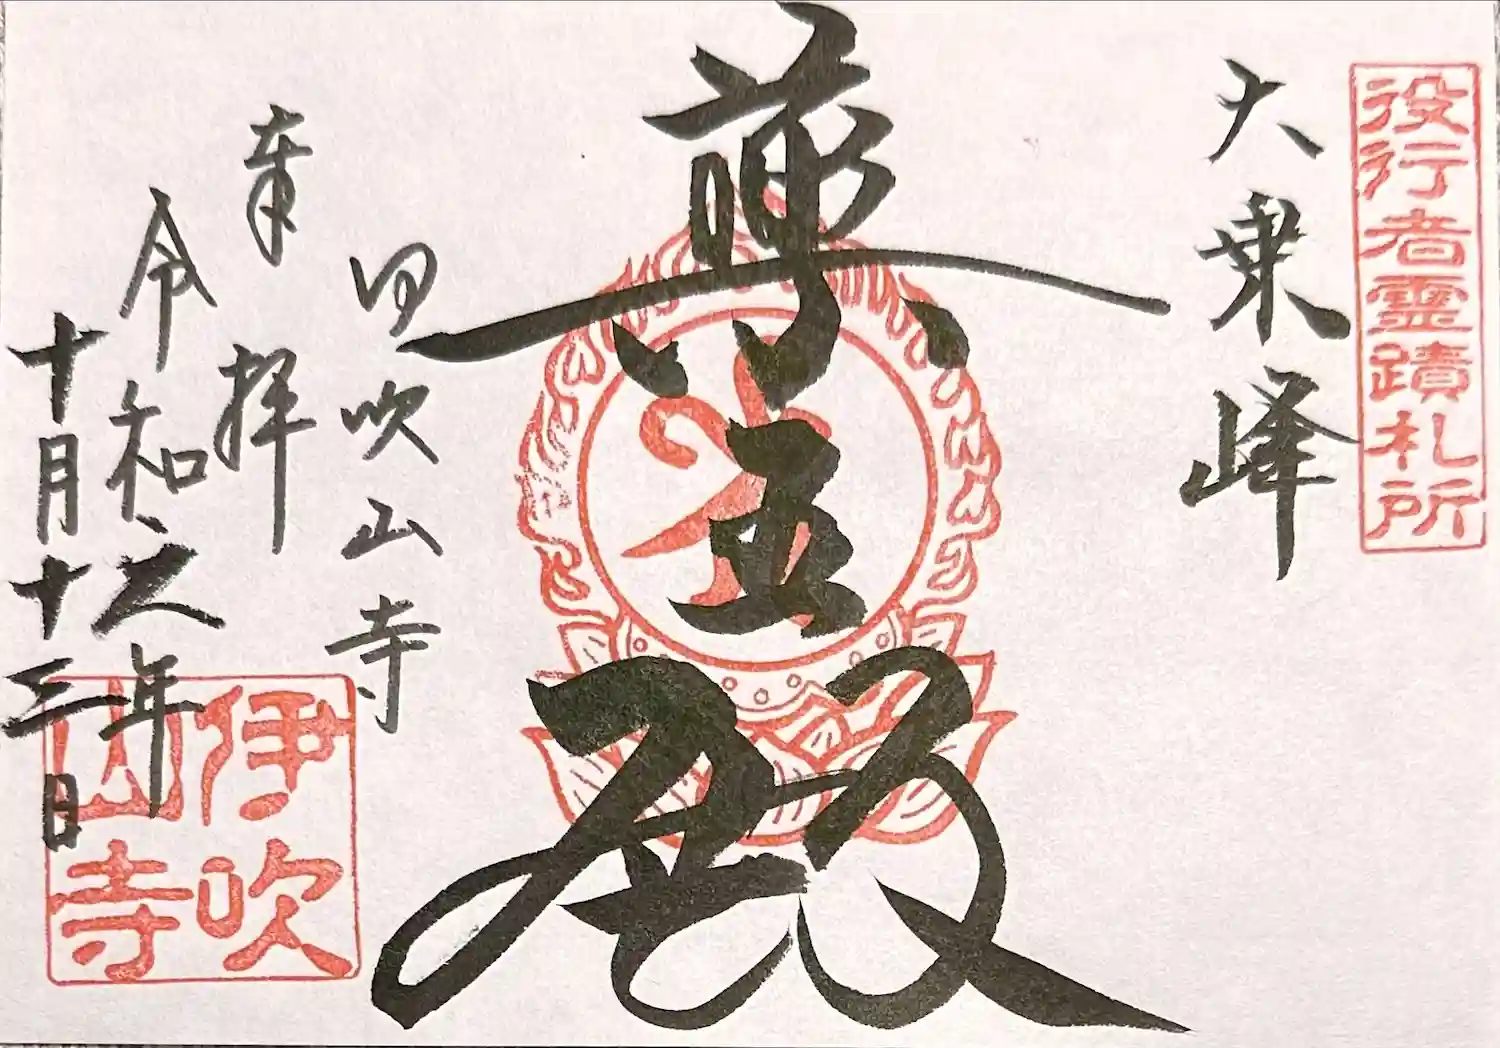 役行者霊蹟札所
大乗峰
薬王殿
伊吹山寺
奉拝
令和六年
十月十三日
伊吹
山寺